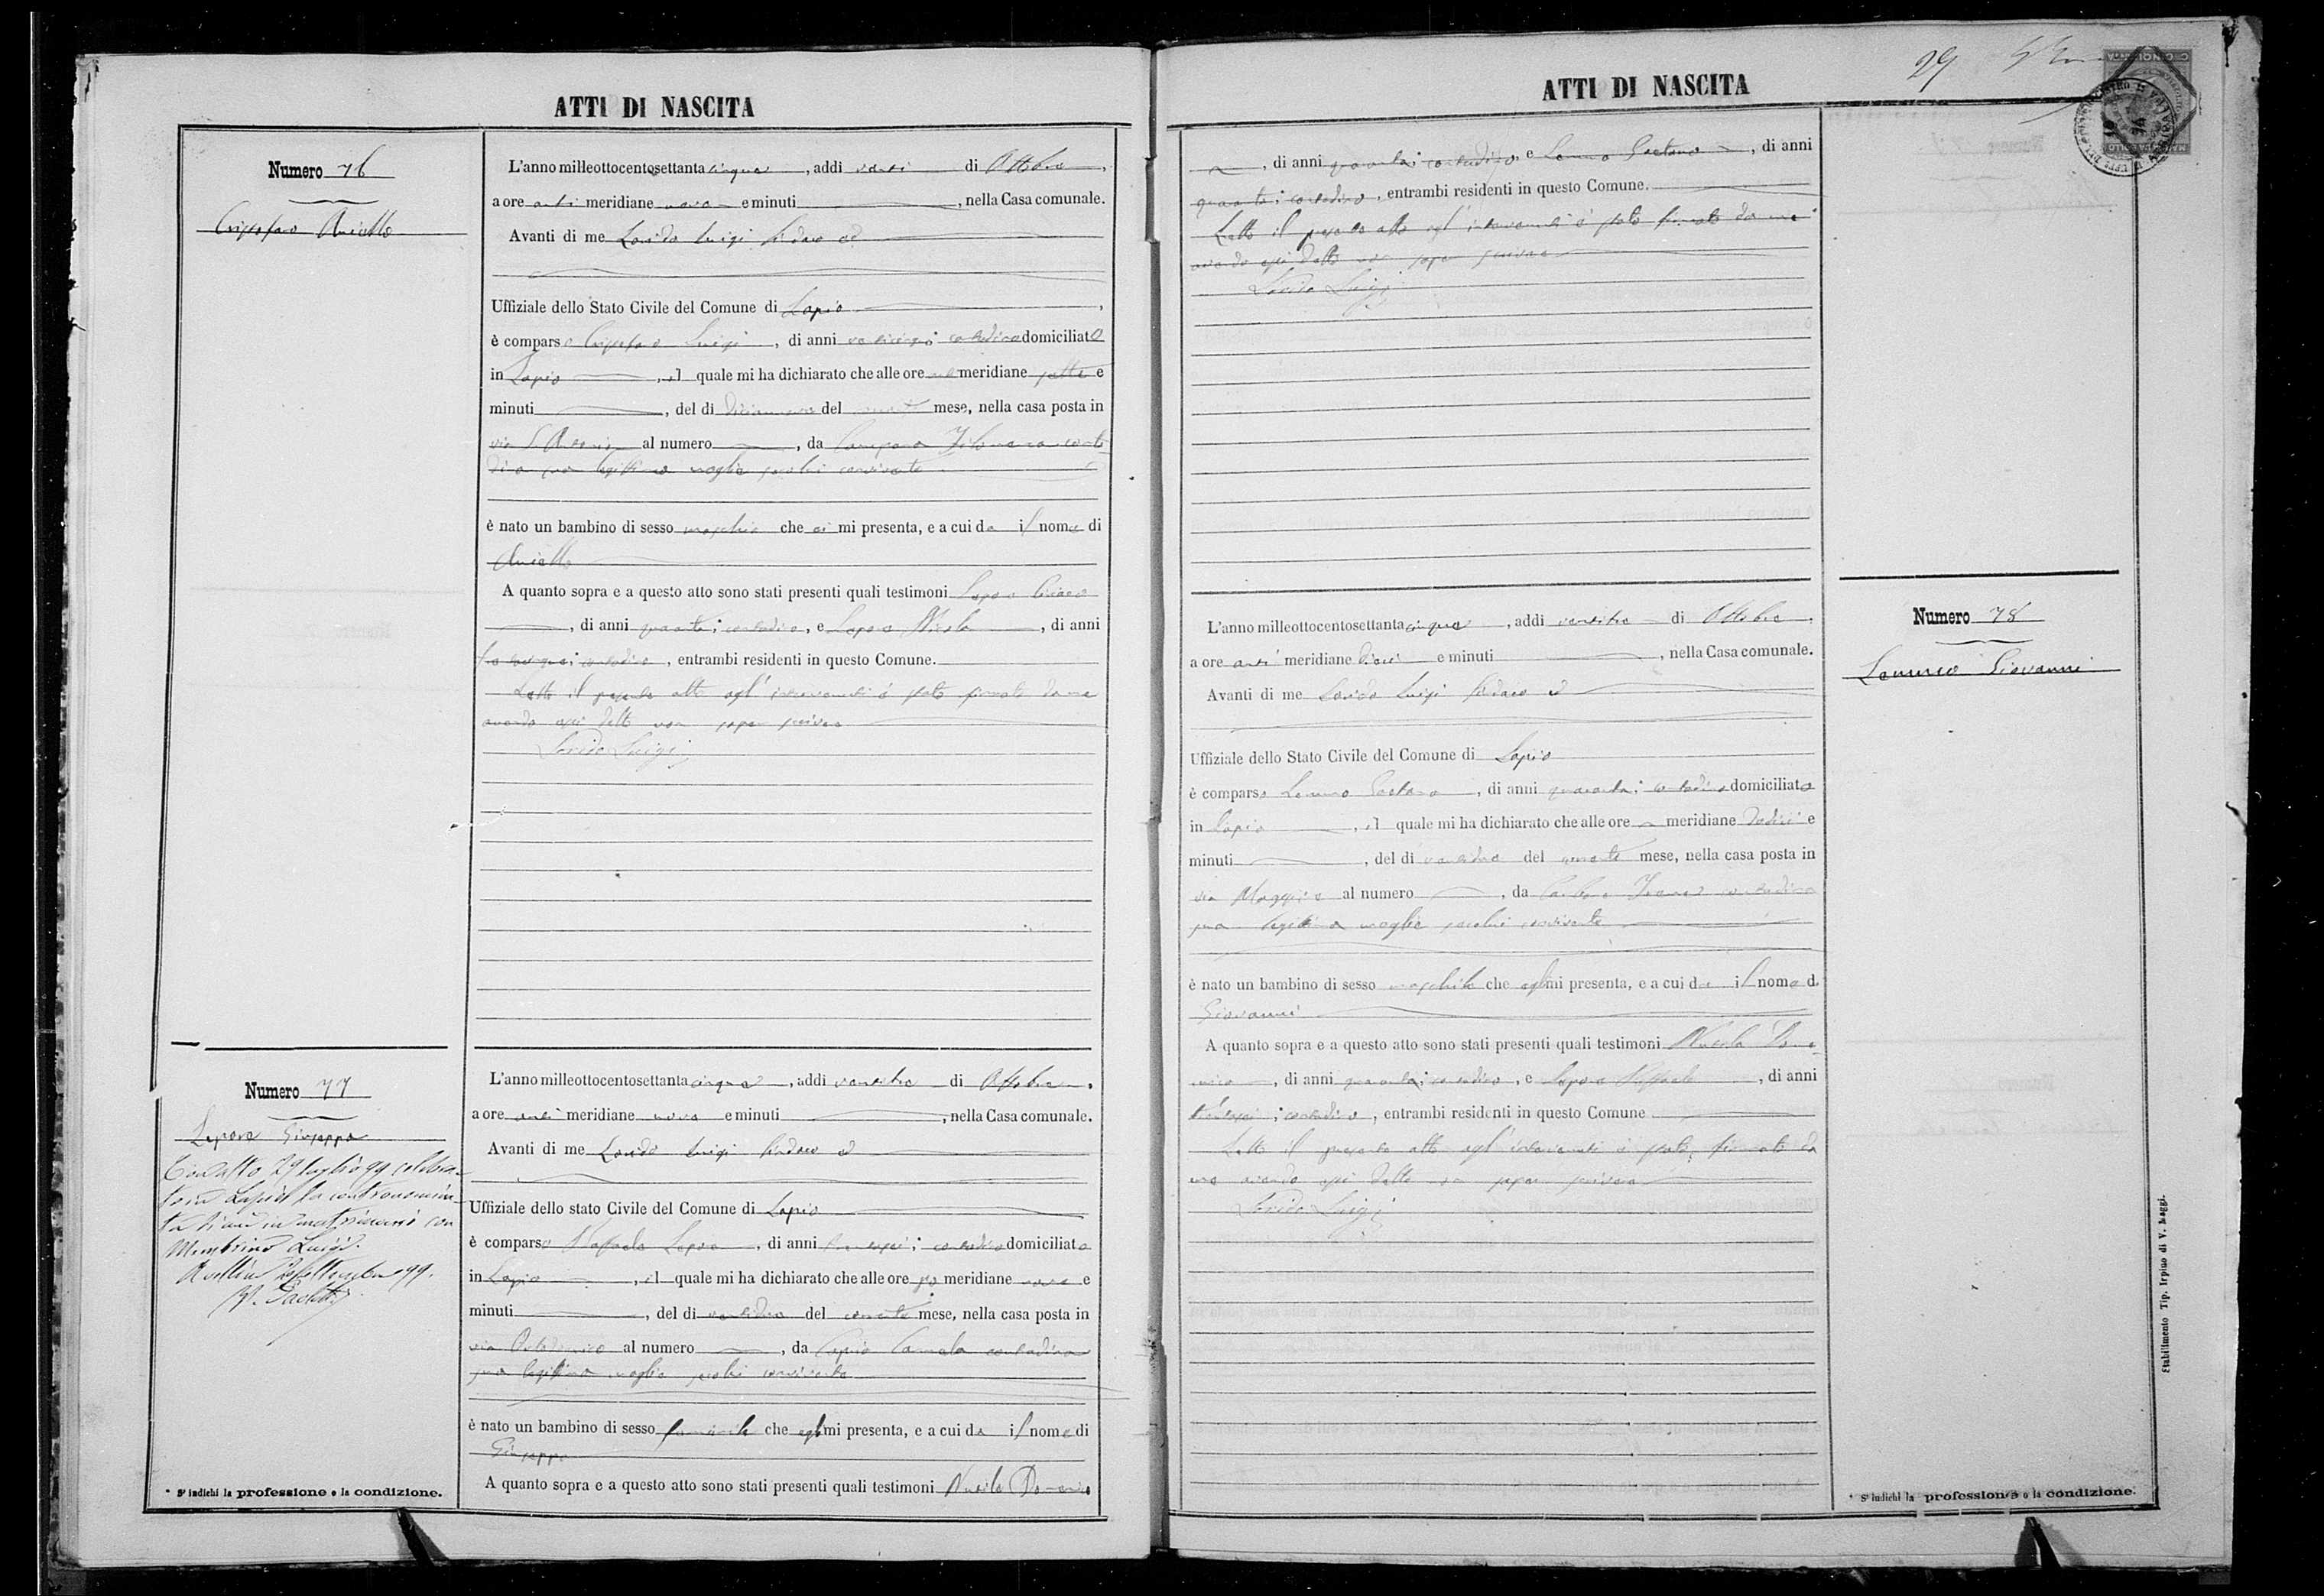 ATTI DI NASCITA
Numero 76
Aniello
L'anno milleottocentosettanta cinque, addì venti di Ottobre,
a ore anti meridiane nove e minuti, nella Casa comunale.
Avanti di me Lorido Luigi Sindaco ed
Uffiziale dello Stato Civile del Comune di Lapio,
è comparso Luigi, di anni contadino domiciliato
in Lapio, il quale mi ha dichiarato che alle ore meridiane sette e
minuti, del dì diciannove del corrente mese, nella casa posta in
via S. Antonio al numero, da Filomena conta
dina sua legittima moglie secolui convivente
è nato un bambino di sesso maschio che ei mi presenta, e a cui da il nome di
Aniello
A quanto sopra e a questo atto sono stati presenti quali testimoni Lepore Ciriaco
, di anni quaranta; contadino, e Lepore Nicola, di anni
contadino, entrambi residenti in questo Comune.
Letto il presente atto agl'intervenuti è stato firmato da me
avendo essi detto non saper scrivere
Lorido Luigi
Numero 77
Lepore Giuseppa
Con atto 29 luglio 99 celebra-
to in Lapio la controsceritta
in matrimonio con
Luigi.
Avellino Settembre 99.
L'anno milleottocentosettanta cinque, addì ventitre di Ottobre,
a ore anti meridiane nove e minuti, nella Casa comunale.
Avanti di me Lorido Luigi Sindaco ed
Uffiziale dello stato Civile del Comune di Lapio
è comparso Raffaele Lepore, di anni trentasei; contadino domiciliato
in Lapio, il quale mi ha dichiarato che alle ore po meridiane nove e
minuti, del dì ventidue del corrente mese, nella casa posta in
via al numero, da Carmela contadina
sua legittima moglie secolui convivente
è nato un bambino di sesso femminile che egli mi presenta, e a cui da il nome di
Giuseppa
A quanto sopra e a questo atto sono stati presenti quali testimoni Nucila Domenico
* S'indichi la professione o la condizione.
ATTI DI NASCITA
29
, di anni quaranta; contadino, e Lemmo Gaetano, di anni
quaranta; contadino, entrambi residenti in questo Comune.
Letto il presente atto agl'intervenuti è stato firmato da me
avendo essi detto non saper scrivere
Lorido Luigi
Numero 78
Lemmo Giovanni
L'anno milleottocentosettanta cinque, addì ventitre di Ottobre,
a ore anti meridiane dieci e minuti, nella Casa comunale.
Avanti di me Lorido Luigi Sindaco ed
Uffiziale dello Stato Civile del Comune di Lapio
è comparso Lemmo Gaetano, di anni quaranta; contadino domiciliato
in Lapio, il quale mi ha dichiarato che alle ore meridiane dodici e
minuti, del dì ventidue del corrente mese, nella casa posta in
via Maggiore al numero, da contadina
sua legittima moglie secolui convivente
è nato un bambino di sesso maschile che egli mi presenta, e a cui da il nome d
Giovanni
A quanto sopra e a questo atto sono stati presenti quali testimoni Nucila Dome-
nico, di anni quaranta; contadino, e Lepore Raffaele, di anni
trentasei; contadino, entrambi residenti in questo Comune
Letto il presente atto agl'intervenuti è stato firmato da
me avendo essi detto non saper scrivere
Lorido Luigi
* S'indichi la professione o la condizione.
Stabilimento Tip. Irpino di V. Maggi.